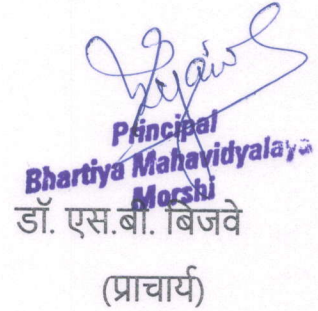 Principal
Bhartiya Mahavidyalaya
Morshi
डॉ. एस.बी. बिजवे
(प्राचार्य)